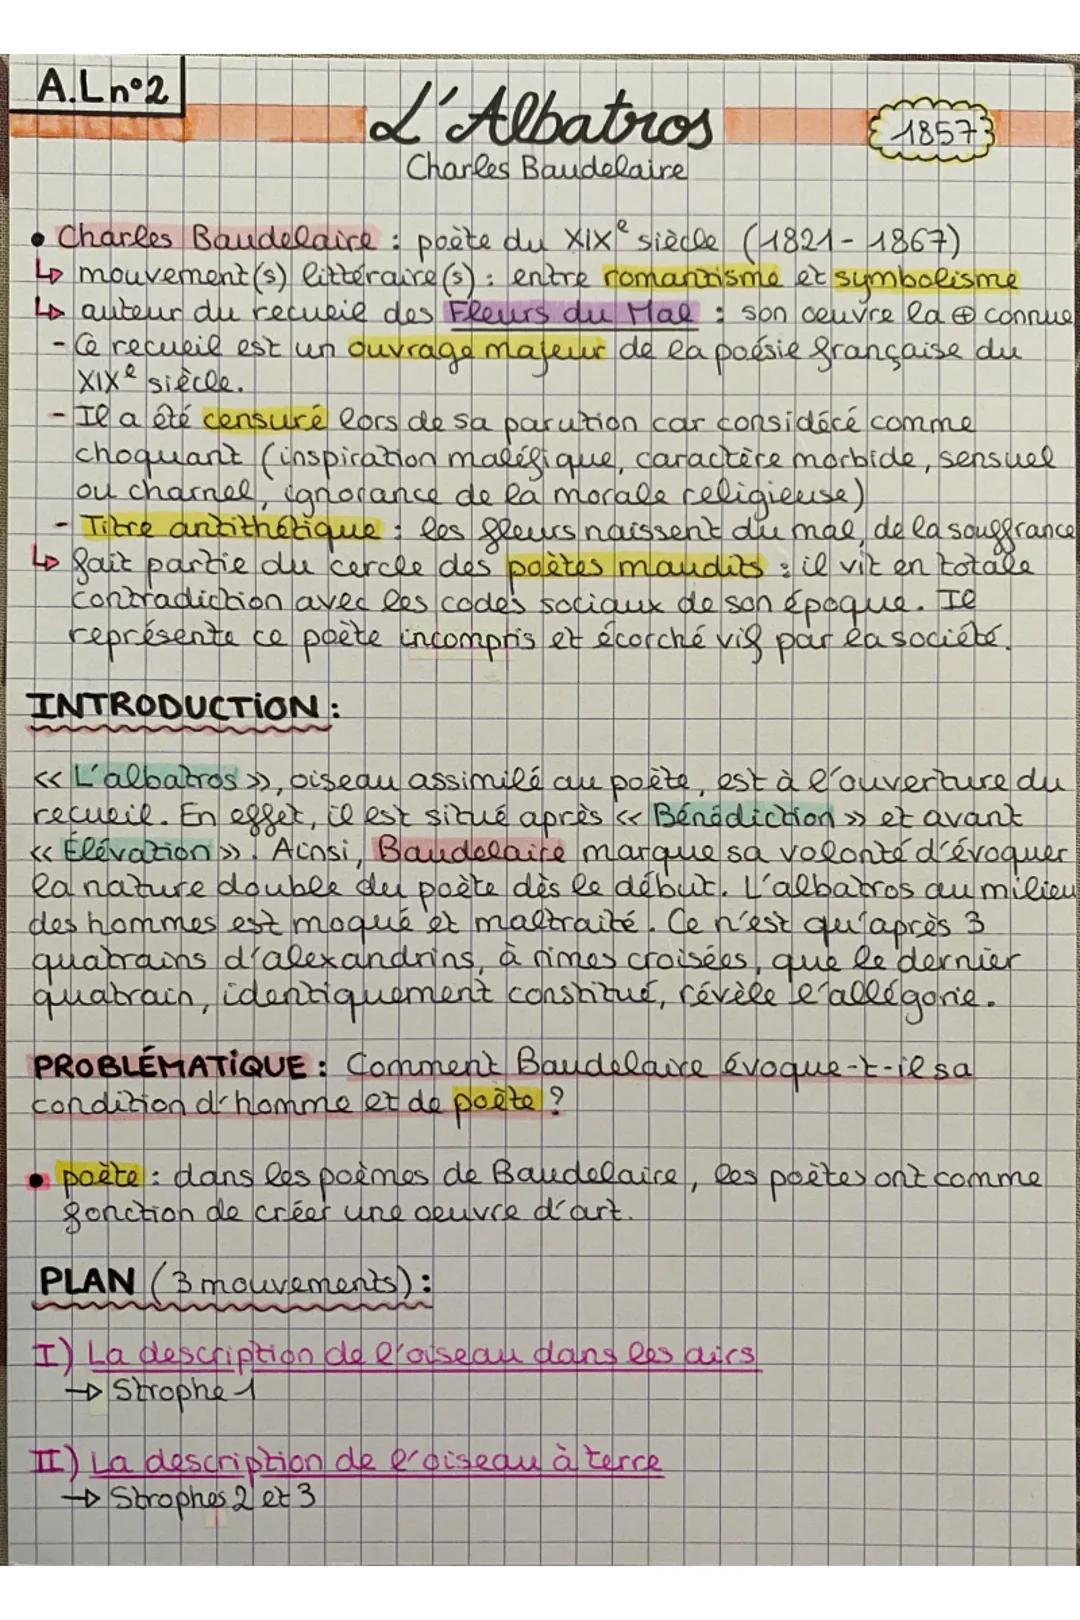 A.L n°2
L'Albatros
1857
Charles Baudelaire
• Charles Baudelaire : poète du XIXe siècle (1821-1867)
↳ mouvement(s) littéraire(s) : entre romantisme et symbolisme
↳ auteur du recueil des Fleurs du Mal : son œuvre la ⊕ connue
- Ce recueil est un ouvrage majeur de la poésie française du
XIXe siècle.
- Il a été censuré lors de sa parution car considéré comme
choquant (inspiration maléfique, caractère morbide, sensuel
ou charnel, ignorance de la morale religieuse)
- Titre antithétique : les fleurs naissent du mal, de la souffrance
↳ fait partie du cercle des poètes maudits : il vit en totale
contradiction avec les codes sociaux de son époque. Il
représente ce poète incompris et écorché vif par la société.
INTRODUCTION :
<< L'albatros >>, oiseau assimilé au poète, est à l'ouverture du
recueil. En effet, il est situé après << Bénédiction >> et avant
<< Élévation >>. Ainsi, Baudelaire marque sa volonté d'évoquer
la nature double du poète dès le début. L'albatros au milieu
des hommes est moqué et maltraité. Ce n'est qu'après 3
quatrains d'alexandrins, à rimes croisées, que le dernier
quatrain, identiquement constitué, révèle l'allégorie.
PROBLÉMATIQUE : Comment Baudelaire évoque-t-il sa
condition d'homme et de poète ?
• poète : dans les poèmes de Baudelaire, les poètes ont comme
fonction de créer une œuvre d'art.
PLAN (3 mouvements) :
I) La description de l'oiseau dans les airs
→ Strophe 1
II) La description de l'oiseau à terre
→ Strophes 2 et 3